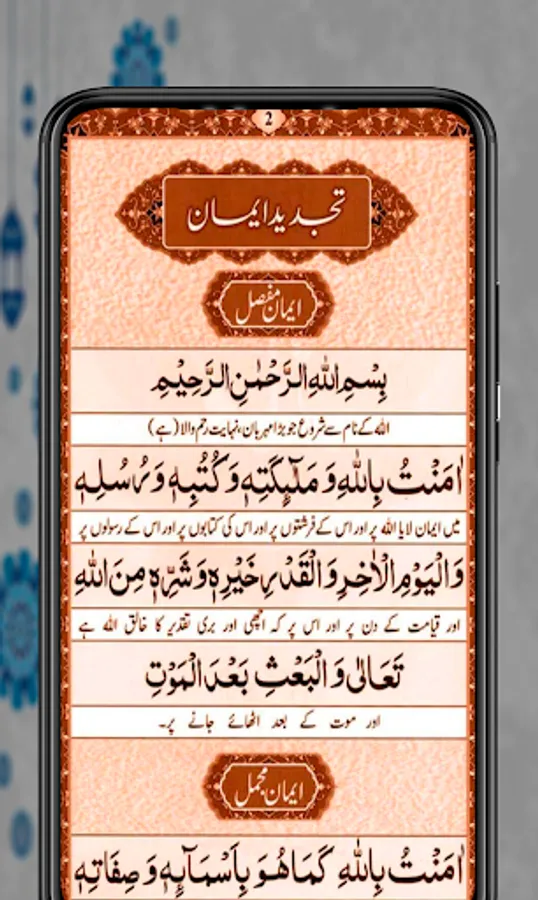 2
تجدید ایمان
ایمان مفصل
بِسْمِ اللّٰهِ الرَّحْمٰنِ الرَّحِیْمِ
اللہ کے نام سے شروع جو بڑا مہربان، نہایت رحم والا (ہے)
اٰمَنْتُ بِاللّٰهِ وَ مَلٰٓئِكَتِهٖ وَ كُتُبِهٖ وَ رُسُلِهٖ
میں ایمان لایا اللہ پر اور اس کے فرشتوں پر اور اس کی کتابوں پر اور اس کے رسولوں پر
وَالْیَوْمِ الْاٰخِرِ وَالْقَدْرِ خَیْرِهٖ وَ شَرِّهٖ مِنَ اللّٰهِ
اور قیامت کے دن پر اور اس پر کہ اچھی اور بری تقدیر کا خالق اللہ ہے
تَعَالٰی وَالْبَعْثِ بَعْدَ الْمَوْتِ
اور موت کے بعد اٹھائے جانے پر۔
ایمان مجمل
اٰمَنْتُ بِاللّٰهِ كَمَا هُوَ بِاَسْمَآئِهٖ وَ صِفَاتِهٖ